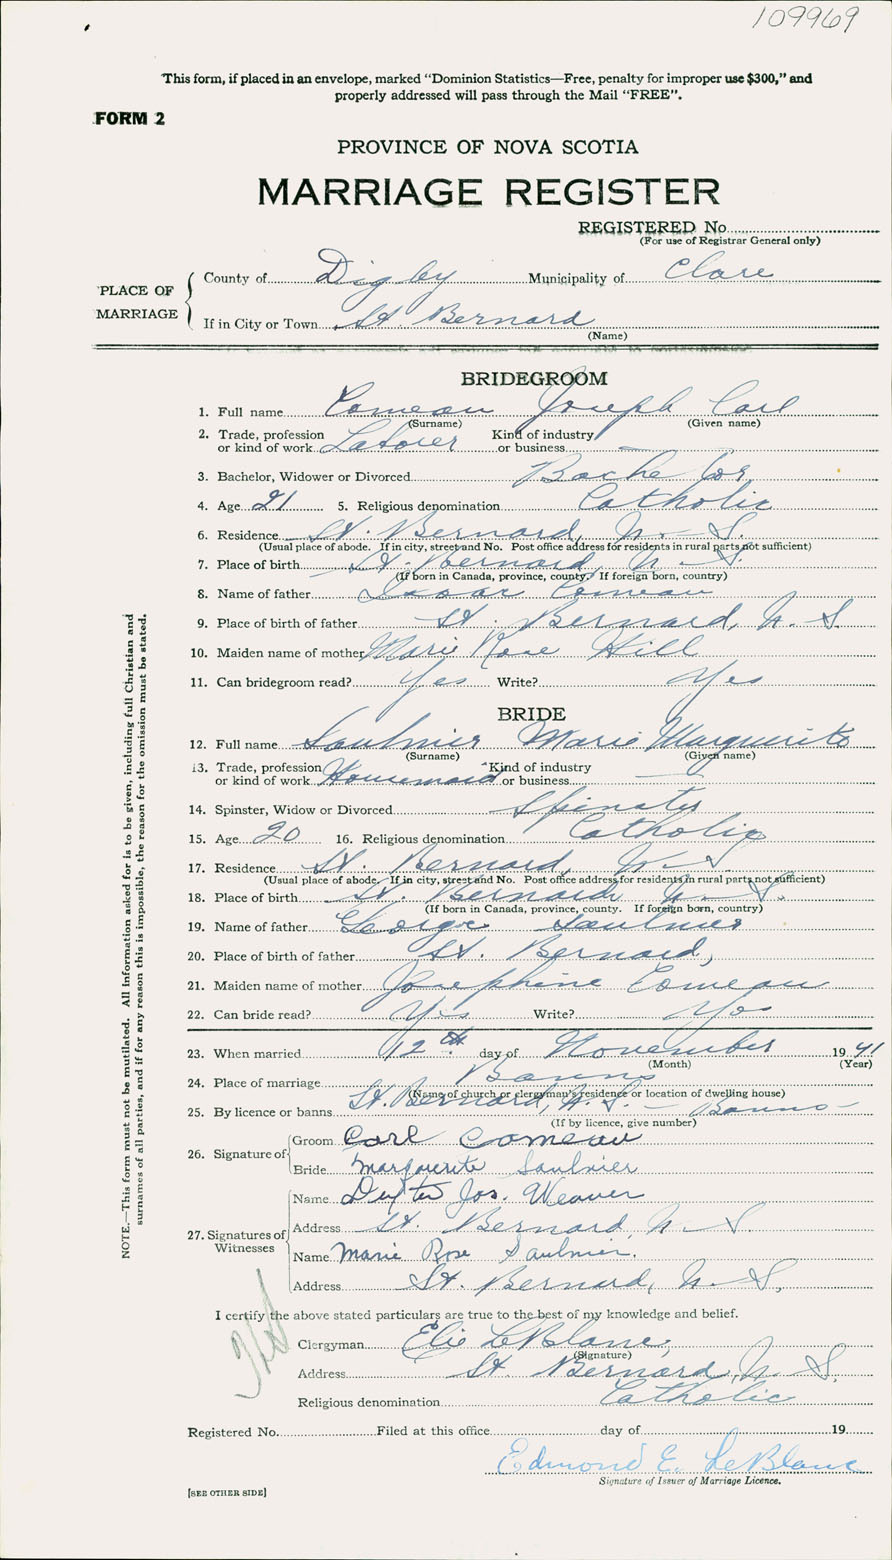 109969
This form, if placed in an envelope, marked "Dominion Statistics—Free, penalty for improper use $300," and
properly addressed will pass through the Mail "FREE".
FORM 2
PROVINCE OF NOVA SCOTIA
MARRIAGE REGISTER
REGISTERED No.
(For use of Registrar General only)
PLACE OF MARRIAGE
County of Digby Municipality of Clare
If in City or Town St. Bernard
(Name)
BRIDEGROOM
1. Full name Comeau Joseph Carl
(Surname) (Given name)
2. Trade, profession or kind of work Laborer Kind of industry or business —
3. Bachelor, Widower or Divorced Bachelor
4. Age 21 5. Religious denomination Catholic
6. Residence St. Bernard, N. S.
(Usual place of abode. If in city, street and No. Post office address for residents in rural parts not sufficient)
7. Place of birth St. Bernard, N. S.
(If born in Canada, province, county. If foreign born, country)
8. Name of father Comeau
9. Place of birth of father St. Bernard, N. S.
10. Maiden name of mother Marie Rose Hill
11. Can bridegroom read? Yes Write? Yes
BRIDE
12. Full name Saulnier Marie Marguerite
(Surname) (Given name)
13. Trade, profession or kind of work Housemaid Kind of industry or business —
14. Spinster, Widow or Divorced Spinster
15. Age 20 16. Religious denomination Catholic
17. Residence St. Bernard, N. S.
(Usual place of abode. If in city, street and No. Post office address for residents in rural parts not sufficient)
18. Place of birth St. Bernard, N. S.
(If born in Canada, province, county. If foreign born, country)
19. Name of father George Saulnier
20. Place of birth of father St. Bernard,
21. Maiden name of mother Josephine Comeau
22. Can bride read? Yes Write? Yes
23. When married 12th. day of November 1941
(Month) (Year)
24. Place of marriage Banns
(Name of church or clergyman's residence or location of dwelling house)
25. By licence or banns St. Bernard, N. S. — Banns —
(If by licence, give number)
26. Signature of
Groom Carl Comeau
Bride Marguerite Saulnier
27. Signatures of Witnesses
Name Dexter Jos. Weaver
Address St. Bernard, N. S.
Name Marie Rose Saulnier.
Address St. Bernard, N. S.
I certify the above stated particulars are true to the best of my knowledge and belief.
Clergyman Elie LeBlanc,
(Signature)
Address St. Bernard, N. S.
Religious denomination Catholic
Registered No. Filed at this office day of 19
Edmond E. LeBlanc
Signature of Issuer of Marriage Licence.
[SEE OTHER SIDE]
NOTE.—This form must not be mutilated. All Information asked for is to be given, including full Christian and
surnames of all parties, and if for any reason this is impossible, the reason for the omission must be stated.